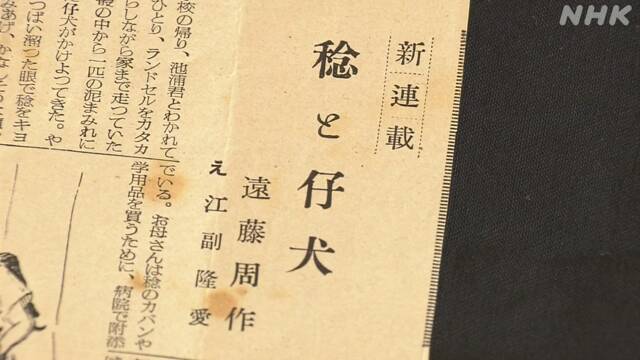 NHK
新連載
稔と仔犬
遠藤周作
え 江副隆愛
校の帰り、池浦君とわかれて
ひとり、ランドセルをカタカ
らしながら家まで走つていた
の中から一匹の泥まみれに
仔犬がかけよつてきた。や
つぱい溜つた眼で稔をキヨ
みあげ、かなし
でいる。お母さんは稔のカバンや
学用品を買うために、病院で附添